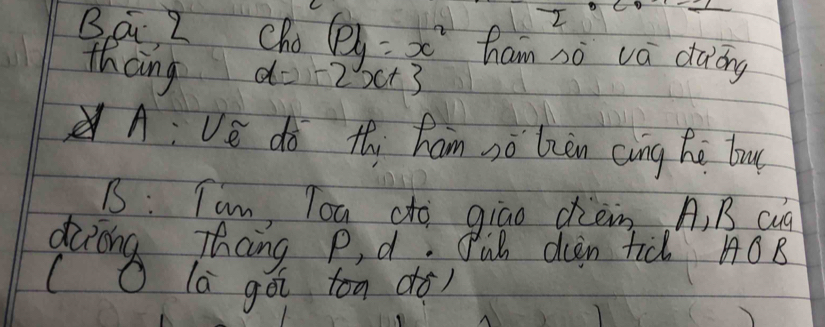 Bài 2 Cho (P)y = x² hàm số và đường
thẳng d = -2x+3
A : Vẽ đồ thị hàm số trên cùng hệ trục
B : Tìm Toạ độ giao điểm A, B của
đường Thẳng P, d . Tính diện tích AOB
( O là gốc toạ độ)